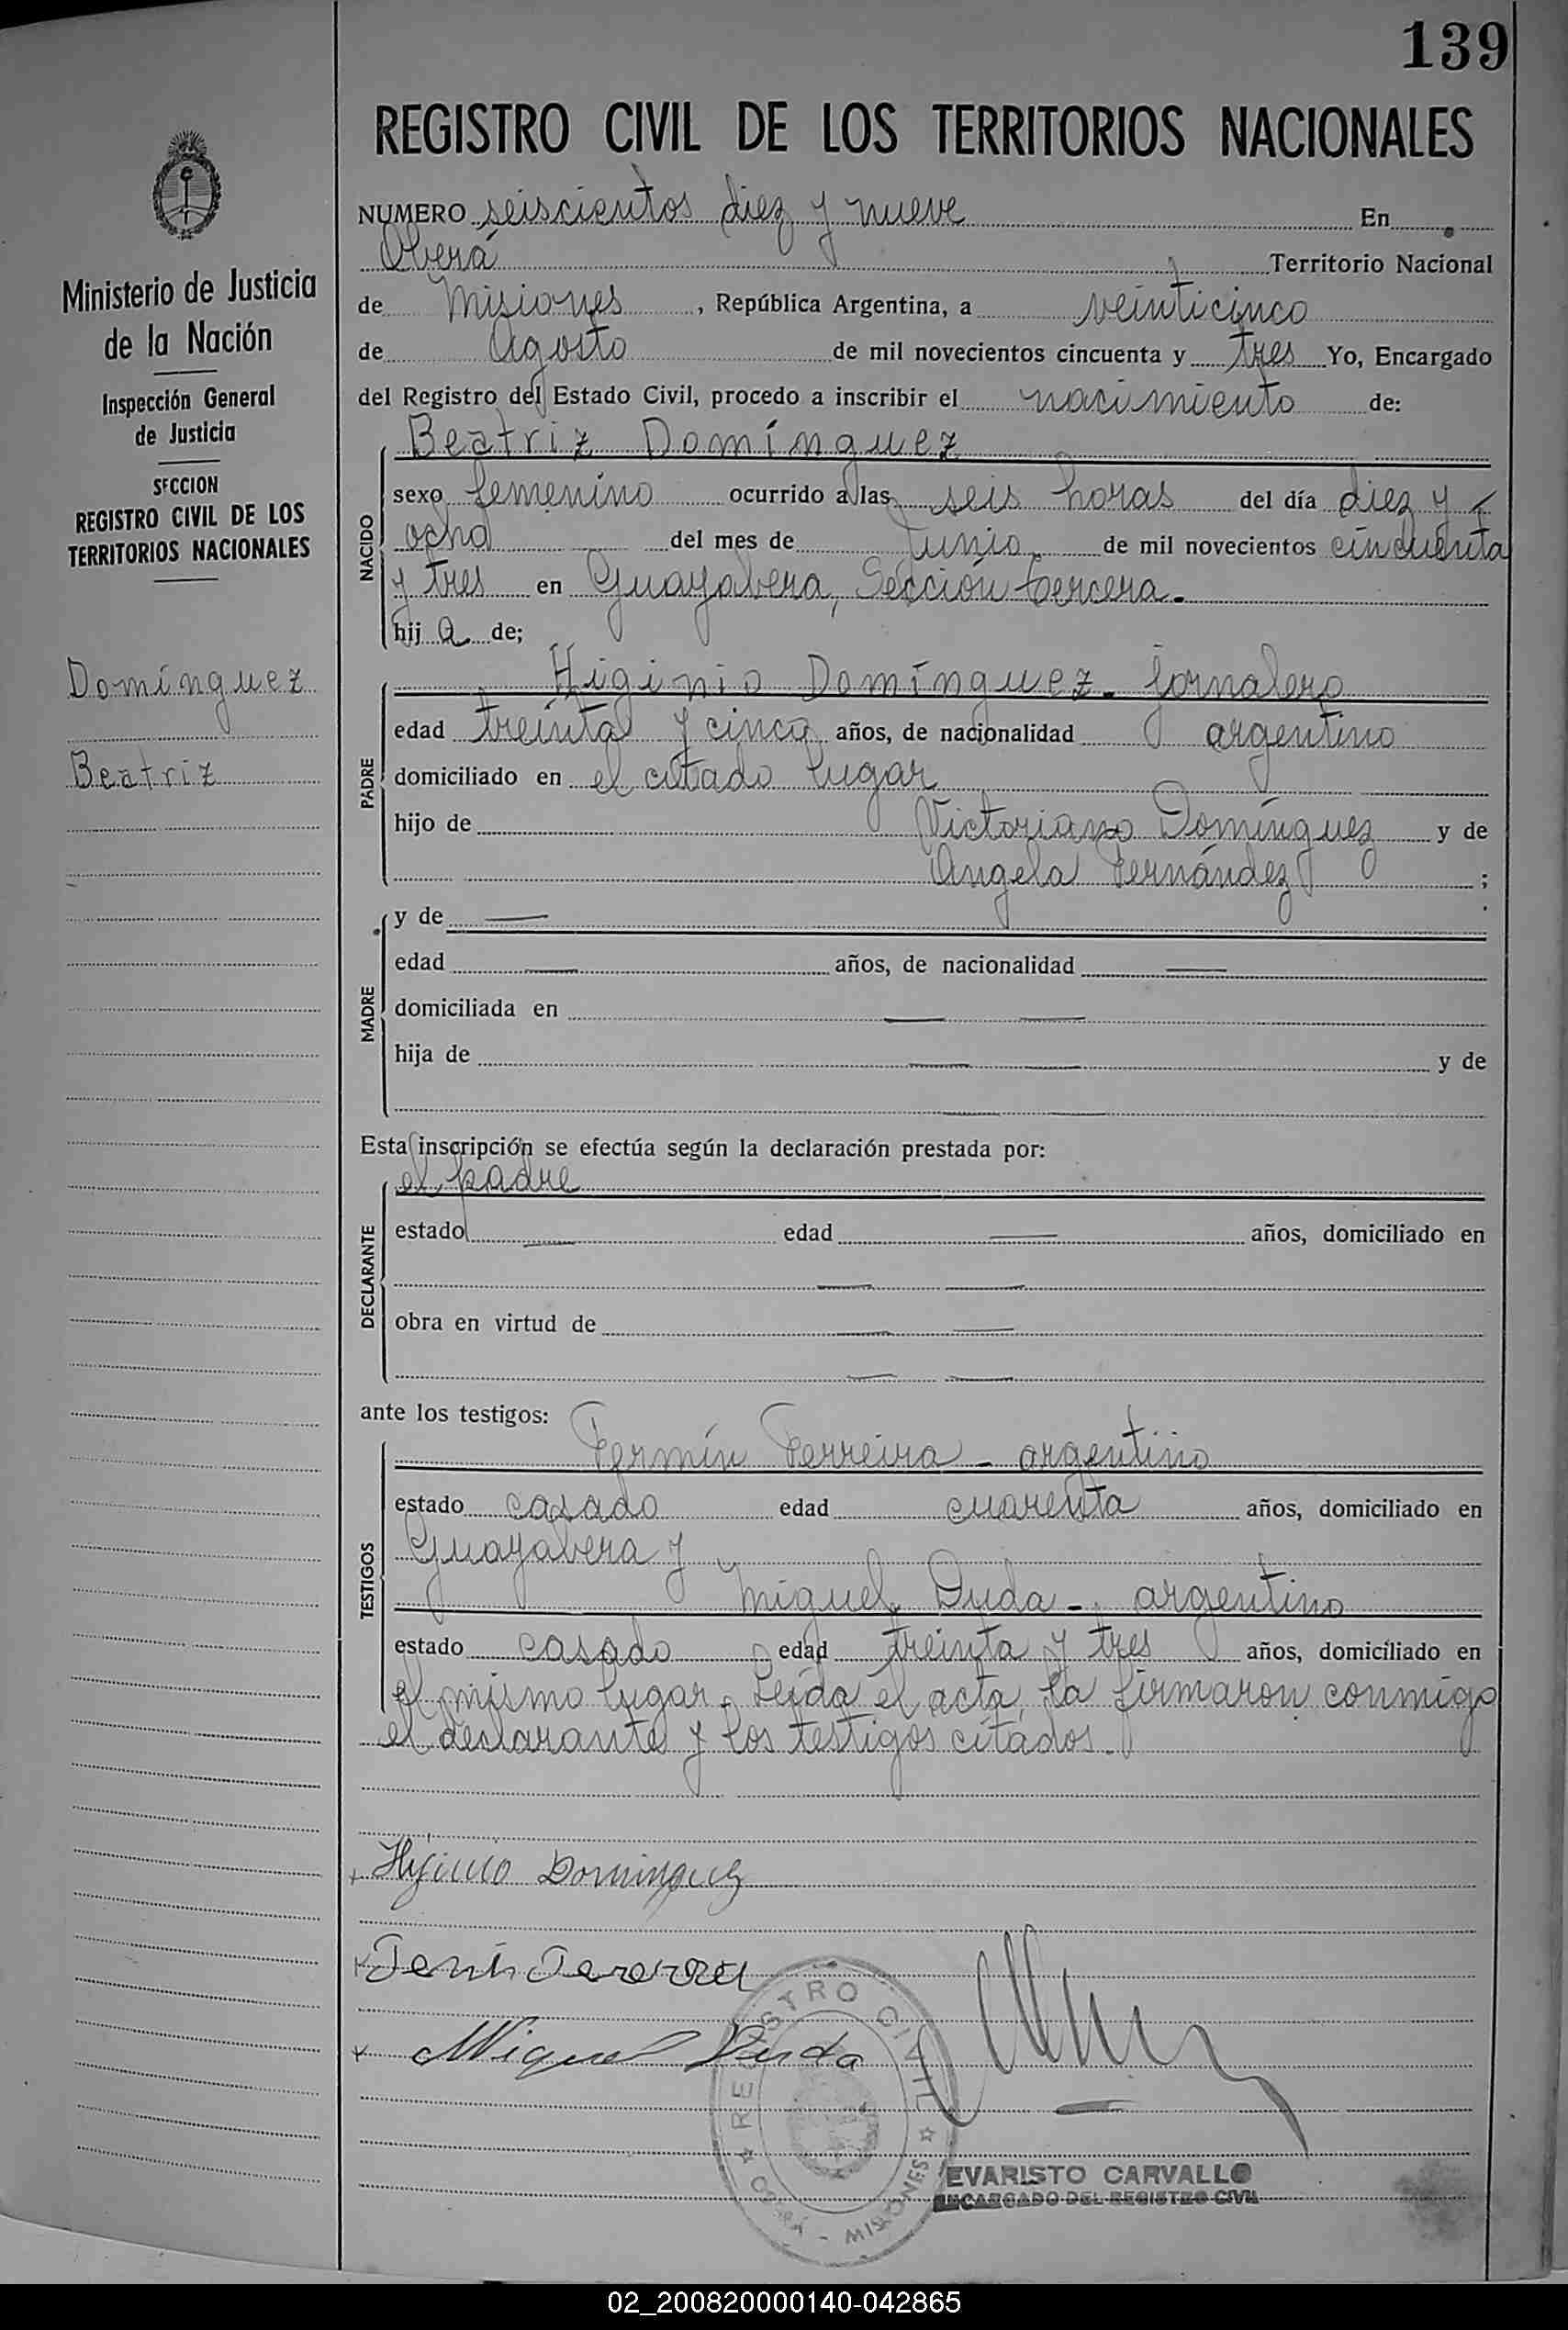 139
REGISTRO CIVIL DE LOS TERRITORIOS NACIONALES
Ministerio de Justicia
de la Nación
Inspección General
de Justicia
SECCION
REGISTRO CIVIL DE LOS
TERRITORIOS NACIONALES
Domínguez
Beatriz
NUMERO seiscientos diez y nueve En
Oberá Territorio Nacional
de Misiones, República Argentina, a veinticinco
de Agosto de mil novecientos cincuenta y tres Yo, Encargado
del Registro del Estado Civil, procedo a inscribir el nacimiento de:
NACIDO
Beatriz Domínguez
sexo femenino ocurrido a las seis horas del día diez y
ocho del mes de Junio de mil novecientos cincuenta
y tres en Guayabera, Sección tercera.
hija de;
PADRE
Higinio Domínguez - jornalero
edad treinta y cinco años, de nacionalidad argentino
domiciliado en el citado lugar
hijo de Victoriano Domínguez y de
Angela Fernández ;
MADRE
y de —
edad — años, de nacionalidad —
domiciliada en — —
hija de — — y de
— —
Esta inscripción se efectúa según la declaración prestada por:
DECLARANTE
el padre
estado — edad — años, domiciliado en
— —
obra en virtud de — —
— —
ante los testigos:
TESTIGOS
Fermín Ferreira - argentino
estado casado edad cuarenta años, domiciliado en
Guayabera y
Miguel Duda - argentino
estado casado edad treinta y tres años, domiciliado en
el mismo lugar. Leída el acta, la firmaron conmigo
el declarante y los testigos citados.
Higinio Dominguez
Miguel Duda
REGISTRO CIVIL
OBERÁ - MISIONES
EVARISTO CARVALLO
ENCARGADO DEL REGISTRO CIVIL
02_200820000140-042865